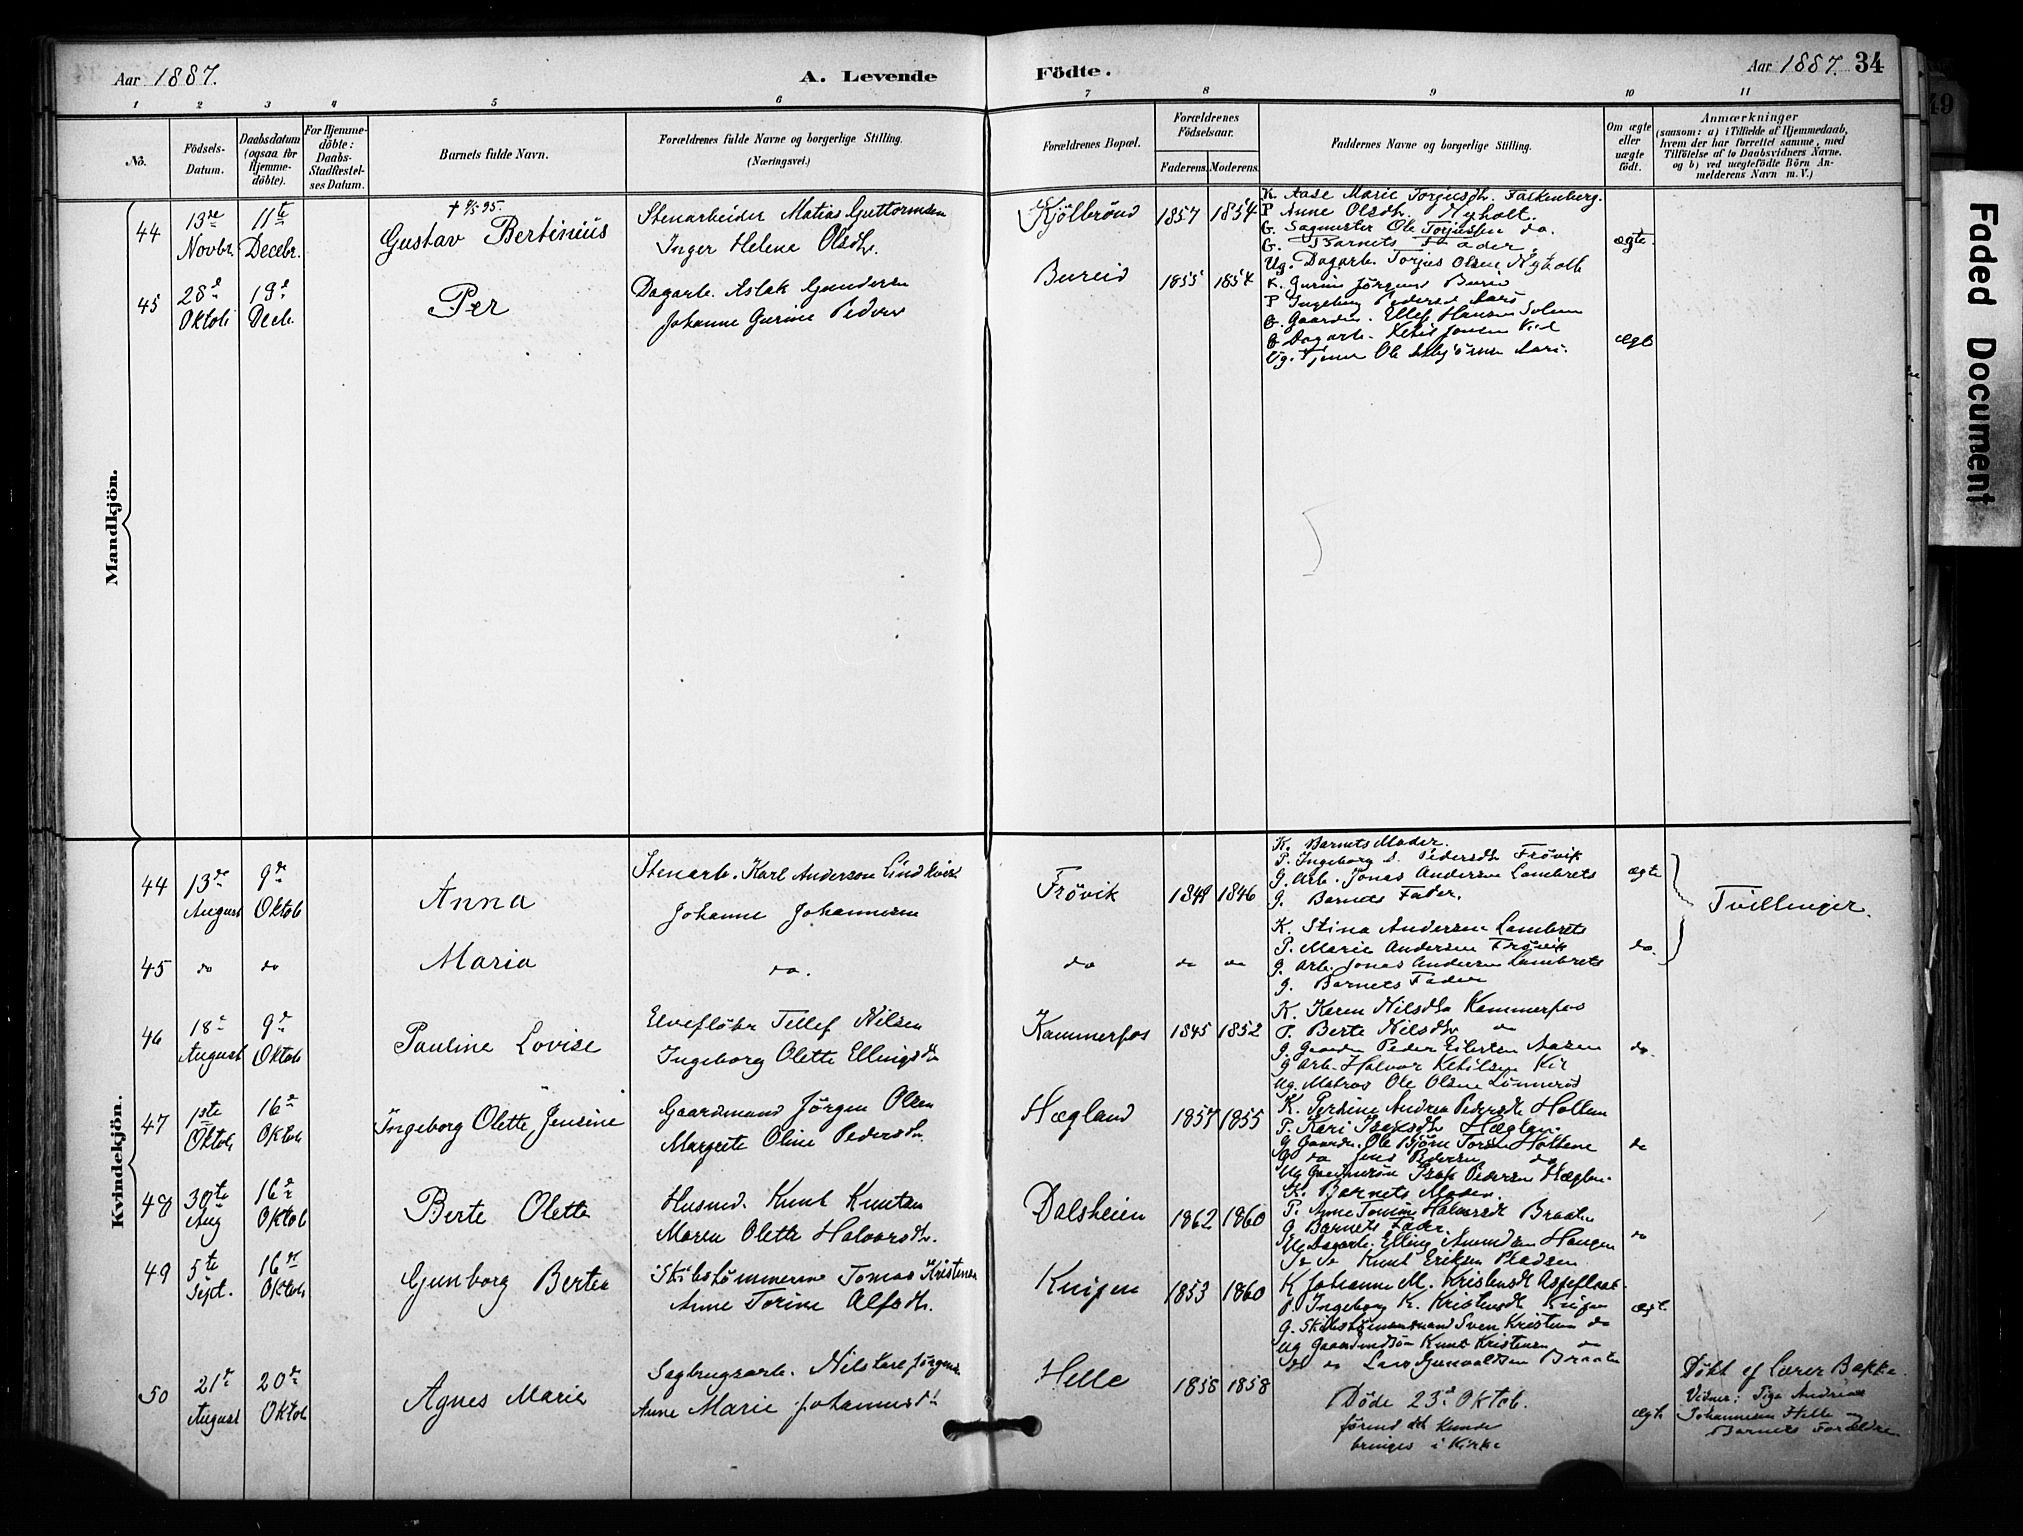 Aar 1887.
A. Levende
Födte.
Aar 1887. 34
1 2 3 4 5 6 7 8 9 10 11
No.
Födsels-Datum.
Daabsdatum (ogsaa for Hjemme-döbte).
For Hjemme-döbte: Daabs-Stadfæstel-ses Datum.
Barnets fulde Navn.
Forældrenes fulde Navne og borgerlige Stilling. (Næringsvei.)
Forældrenes Bopæl.
Forældrenes Födselsaar.
Faderens. Moderens.
Faddernes Navne og borgerlige Stilling.
Om ægte eller uægte födt.
Anmærkninger
(saasom: a) i Tilfælde af Hjemmedaab,
hvem der har forrettet samme, med
Tilföielse af to Daabsvidners Navne.
og b) ved uægtefödte Börn An-
melderens Navn m. V.)
Mandkjön.
44 13de Novbr. 11te Decebr.
Gustav Bertinius
Stenarbeider Matias Guttormsen
Inger Helene Olsdtr.
Kjölbrönd 1857 1854
K. Aase Marie Torjusdtr. Falkenberg.
P Anne Olsdtr. Nyholt.
G. Sagmester Ole Torjussen do.
G. Barnets Fader.
Ug. Dagarb. Torjus Olsen Nyholt
ægte.
45 28d Oktob 19d Decb.
Per
Dagarb. Aslak Gundersen
Johanne Gurine Peders
Bureid 1855 1854
K. Gurine Jörgens Bureid
P Ingeborg Pedersd Aarö
G. Gaardm. Ellef Hansen Solem
G Dagarb. Ketil Jensen Kil
Ug. Tjener Ole Asbjörnsen Aarö.
ægte
Kvindekjön.
44 13de August 9de Oktob
Anna
Stenarb. Karl Anderson Lindkvist
Johanne Johannesen
Frövik 1849 1846
K. Barnets Moder.
P. Ingeborg S. Pedersdtr Frövik
G. Arb. Jonas Andersen Lambrets
G. Barnets Fader.
ægte
Tvillinger.
45 do do
Maria
do.
do do do
K. Stina Andersen Lambrets
P. Marie Andersen Frövik
G. Arb. Jonas Andersen Lambrets
G. Barnets Fader
do.
46 18de August 9de Oktob
Pauline Lovise
Elveflöder Tellef Nilsen
Ingeborg Olette Ellingsdtr
Kammerfos 1845 1852
K. Karen Nilsdtr Kammerfos
P. Berte Nilsdtr do
G. Gaardm Peder Eilertsen Aasen
G Arb. Halvor Ketilsen Kil
Ug. Matros Ole Olsen Lönneröd
do.
47 1ste Oktob 16d Oktob
Ingeborg Olette Jensine
Gaardmand Jörgen Olsen
Margrete Oline Pedersdtr
Hægland 1857 1855
K. Persine Andrea Pedersdtr Holtem
P. Kari Isaksdtr Hæglan.
G Gaardm. Ole Björn Torsen Holtene
G do Jens Pedersen do
Ug Gaardmsön Isak Pedersen Hæglan.
do
48 30te Aug 16d Oktob
Berte Olette
Husmd. Knut Knutsen
Maren Olette Halvorsdtr.
Dalsheien 1862 1860
K. Barnets Moder.
P. Anne Tomine Halvorsdtr Braaten
G. Barnets Fader.
Ug Dagarb. Elling Amundsen Haugen
do do Knut Eriksen Pladsen.
do
49 5te Sept. 16de Oktob
Gunborg Bertea
Skibstömmerm Tomas Kristensen
Anne Torine Alfsdtr.
Knipen 1853 1860
K Johanne M. Kristensdtr Aspeflaat.
P. Ingeborg K. Kristensdtr Knipen
G. Skibstömmermand Sven Kristensen do
Ug Gaardmdsön Knut Kristensen do
do do Lars Gunvaldsen Braaten
ægte
50 21de August 20de Oktob
Agnes Marie
Sagbrugsarb. Nils Karl Jörgensen
Anne Marie Johannesdtr
Helle 1858 1858
Döde 23d Oktob.
förend det kunde
bringes i Kirke
ægte
Döbt af Lærer Bakke.
Vidner: Pige Andrine
Johannesen Helle og
Barnets Forældre.
Faded Document
49